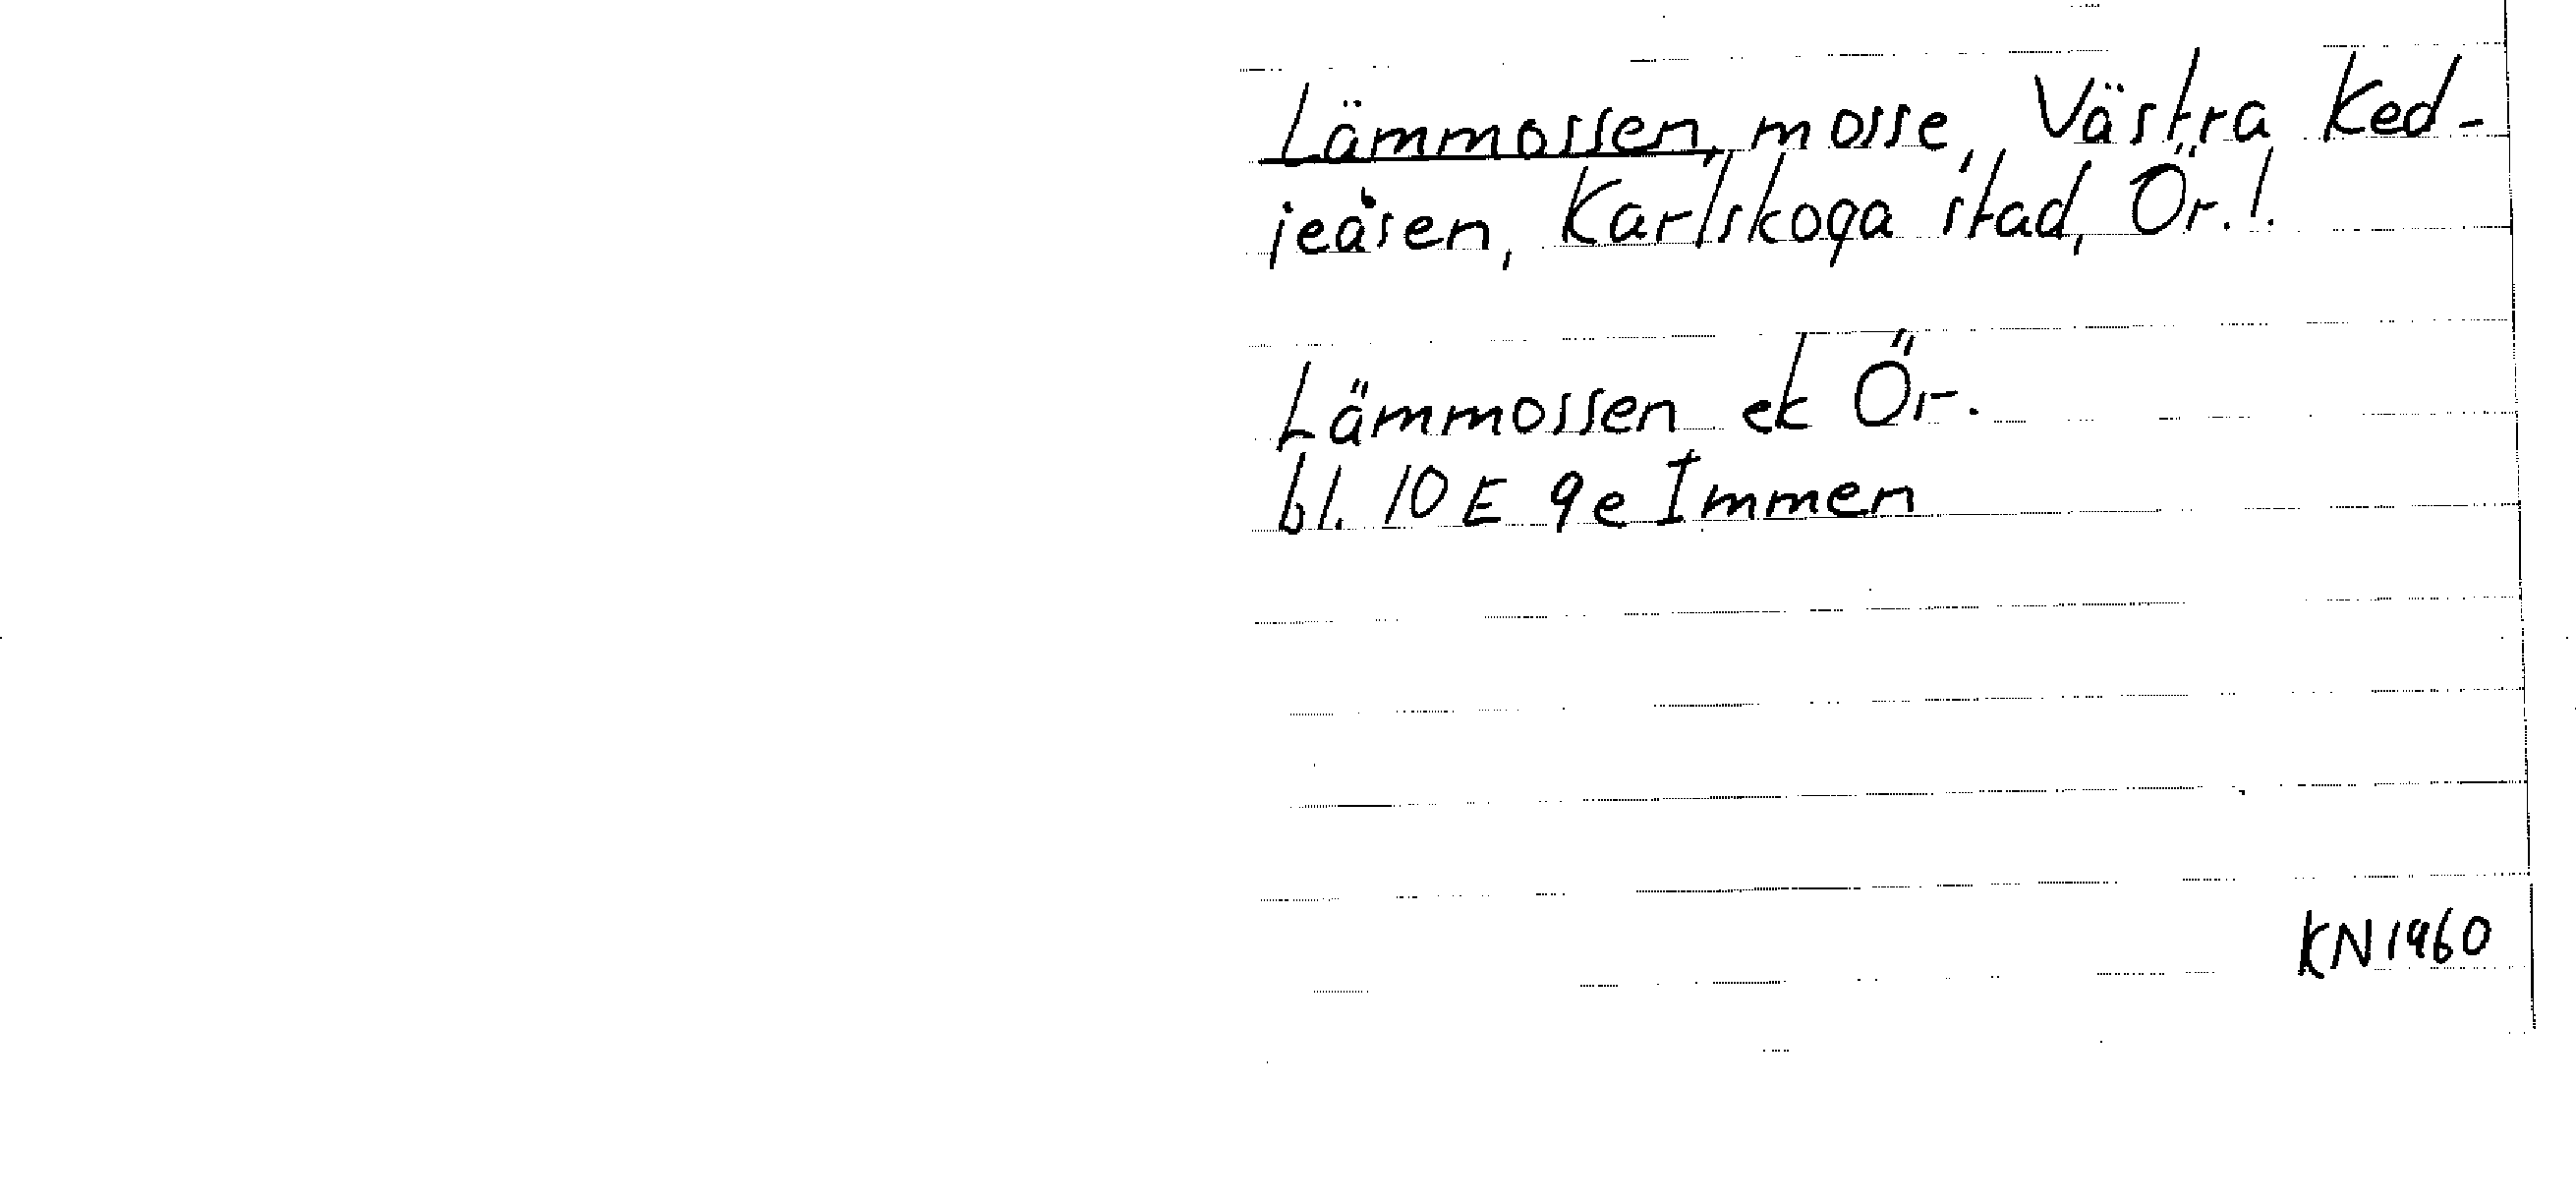 Lämmossen, mosse, Västra Ked-
jeåsen, Karlskoga stad, Ör. l.
Lämmossen ek Ör.
bl. 10 E 9e Immen
KN 1960